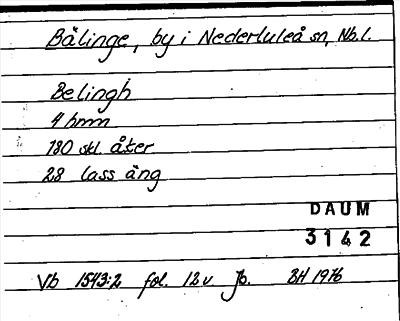 Bälinge, by i Nederluleå sn, Nb.l.
Belingh
4 hmn
180 skl. åker
28 lass äng
DAUM
3142
Vb 1543:2 fol. 12v Jb. BH 1976